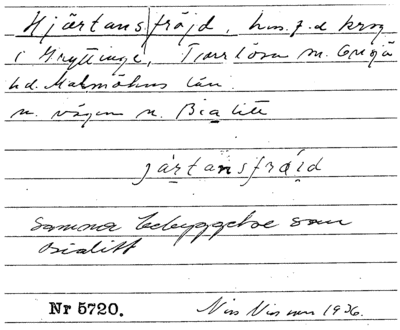 Hjärtansfröjd, hus. f. d krog
i Gryttinge, Torrlösa sn. Onsjö
hd. Malmöhus län.
n. vägen n. Bialitt
jä̱rtansfrö̱jd
Samma bebyggelse som
Bialitt
Nr 5720.
1936.